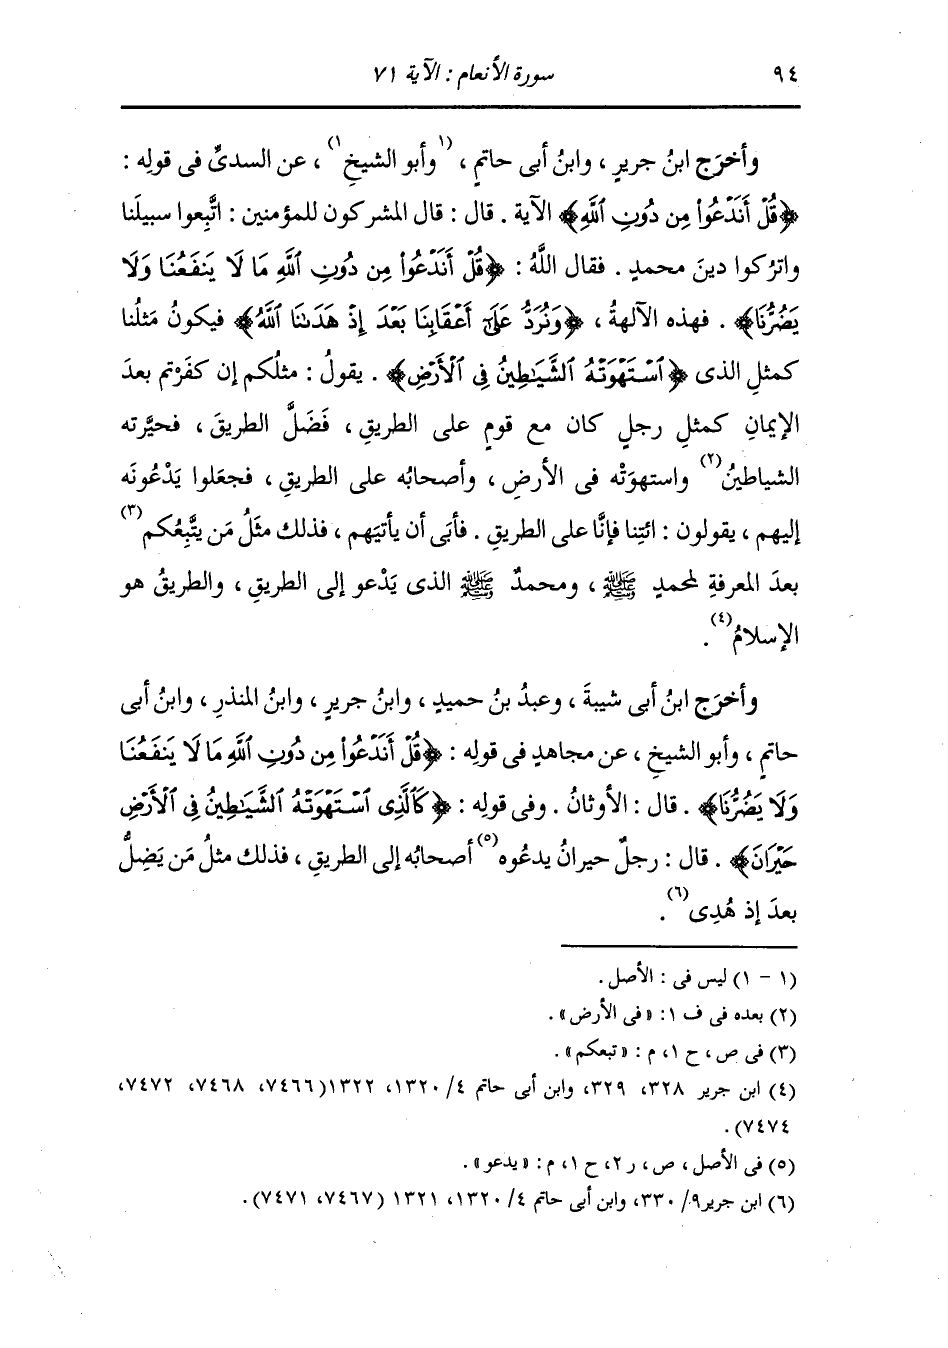 ٩٤ سورة الأنعام : الآية ٧١
وأخرَج ابنُ جريرٍ ، وابنُ أبى حاتمٍ ، (١وأبو الشيخِ١) ، عن السدىِّ فى قولِه :
﴿قُلْ أَنَدْعُواْ مِن دُونِ ٱللَّهِ﴾ الآية . قال : قال المشركون للمؤمنين : اتَّبِعوا سبيلَنا
واترُكوا دينَ محمدٍ . فقال اللَّهُ : ﴿قُلْ أَنَدْعُواْ مِن دُونِ ٱللَّهِ مَا لَا يَنفَعُنَا وَلَا
يَضُرُّنَا﴾ . فهذه الآلهةُ ، ﴿وَنُرَدُّ عَلَىٰٓ أَعْقَابِنَا بَعْدَ إِذْ هَدَىٰنَا ٱللَّهُ﴾ فيكونُ مَثلُنا
كمثلِ الذى ﴿ٱسْتَهْوَتْهُ ٱلشَّيَٰطِينُ فِى ٱلْأَرْضِ﴾ . يقولُ : مثلُكم إن كفَرْتم بعدَ
الإيمانِ كمثلِ رجلٍ كان مع قومٍ على الطريقِ ، فَضَلَّ الطريقَ ، فحيَّرته
الشياطينُ(٢) واستهوَتْه فى الأرضِ ، وأصحابُه على الطريقِ ، فجعَلوا يَدْعُونَه
إليهم ، يقولون : ائتِنا فإنَّا على الطريقِ . فأبَى أن يأتيَهم ، فذلك مثَلُ مَن يتَّبِعُكم(٣)
بعدَ المعرفةِ لمحمدٍ ﷺ ، ومحمدٌ ﷺ الذى يَدْعو إلى الطريقِ ، والطريقُ هو
الإسلامُ(٤) .
وأخرَج ابنُ أبى شيبةَ ، وعبدُ بنُ حميدٍ ، وابنُ جريرٍ ، وابنُ المنذرِ ، وابنُ أبى
حاتمٍ ، وأبو الشيخِ ، عن مجاهدٍ فى قولِه : ﴿قُلْ أَنَدْعُواْ مِن دُونِ ٱللَّهِ مَا لَا يَنفَعُنَا
وَلَا يَضُرُّنَا﴾ . قال : الأوثانُ . وفى قولِه : ﴿كَٱلَّذِى ٱسْتَهْوَتْهُ ٱلشَّيَٰطِينُ فِى ٱلْأَرْضِ
حَيْرَانَ﴾ . قال : رجلٌ حيرانُ يدعُوه(٥) أصحابُه إلى الطريقِ ، فذلك مثلُ مَن يَضِلُّ
بعدَ إذ هُدِى(٦) .
(١ - ١) ليس فى : الأصل .
(٢) بعده فى ف ١: «فى الأرض» .
(٣) فى ص ، ح ١، م : «تبعكم» .
(٤) ابن جرير ٣٢٨، ٣٢٩، وابن أبى حاتم ٤/ ١٣٢٠، ١٣٢٢(٧٤٦٦، ٧٤٦٨، ٧٤٧٢،
٧٤٧٤) .
(٥) فى الأصل ، ص ، ر ٢، ح ١، م : «يدعو» .
(٦) ابن جرير٩/ ٣٣٠، وابن أبى حاتم ٤/ ١٣٢٠، ١٣٢١ (٧٤٦٧، ٧٤٧١) .